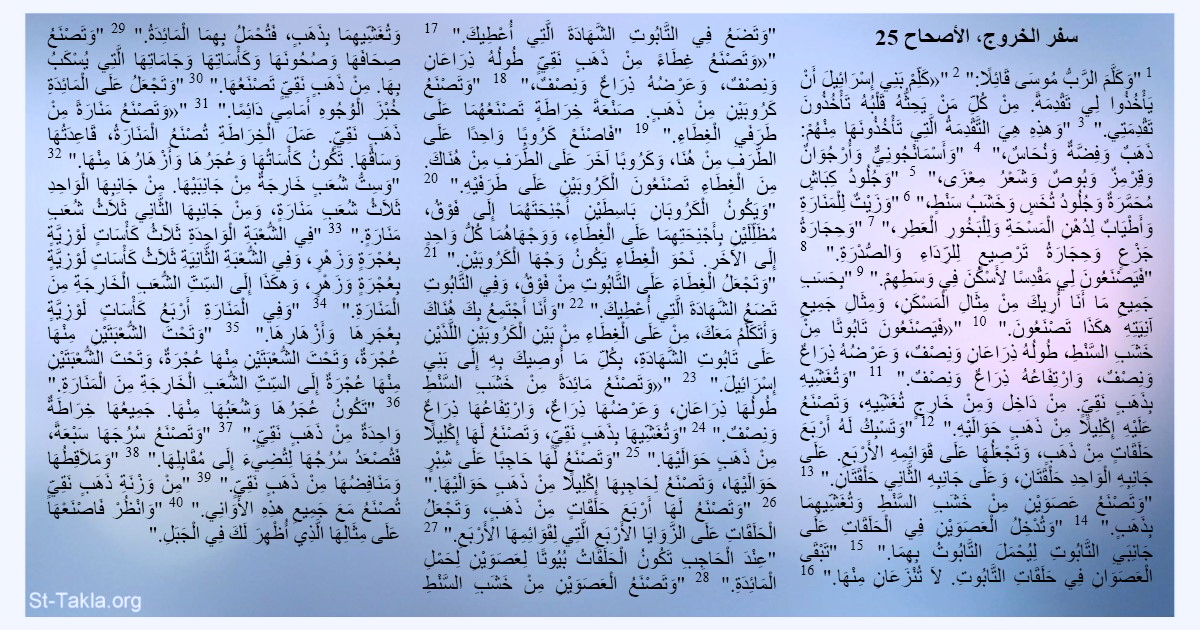 سفر الخروج، الأصحاح 25
1 "وَكَلَّمَ الرَّبُّ مُوسَى قَائِلًا:" 2 "«كَلِّمْ بَنِي إِسْرَائِيلَ أَنْ
يَأْخُذُوا لِي تَقْدِمَةً. مِنْ كُلِّ مَنْ يَحِثُّهُ قَلْبُهُ تَأْخُذُونَ
تَقْدِمَتِي." 3 "وَهذِهِ هِيَ التَّقْدِمَةُ الَّتِي تَأْخُذُونَهَا مِنْهُمْ:
ذَهَبٌ وَفِضَّةٌ وَنُحَاسٌ،" 4 "وَأَسْمَانْجُونِيٌّ وَأُرْجُوَانٌ
وَقِرْمِزٌ وَبُوصٌ وَشَعْرُ مِعْزَى،" 5 "وَجُلُودُ كِبَاشٍ
مُحَمَّرَةٌ وَجُلُودُ تُخَسٍ وَخَشَبُ سَنْطٍ،" 6 "وَزَيْتٌ لِلْمَنَارَةِ
وَأَطْيَابٌ لِدُهْنِ الْمَسْحَةِ وَلِلْبَخُورِ الْعَطِرِ،" 7 "وَحِجَارَةُ
جَزْعٍ وَحِجَارَةُ تَرْصِيعٍ لِلرِّدَاءِ وَالصُّدْرَةِ." 8
"فَيَصْنَعُونَ لِي مَقْدِسًا لأَسْكُنَ فِي وَسَطِهِمْ." 9 "بِحَسَبِ
جَمِيعِ مَا أَنَا أُرِيكَ مِنْ مِثَالِ الْمَسْكَنِ، وَمِثَالِ جَمِيعِ
آنِيَتِهِ هكَذَا تَصْنَعُونَ." 10 "«فَيَصْنَعُونَ تَابُوتًا مِنْ
خَشَبِ السَّنْطِ، طُولُهُ ذِرَاعَانِ وَنِصْفٌ، وَعَرْضُهُ ذِرَاعٌ
وَنِصْفٌ، وَارْتِفَاعُهُ ذِرَاعٌ وَنِصْفٌ." 11 "وَتُغَشِّيهِ
بِذَهَبٍ نَقِيٍّ. مِنْ دَاخِل وَمِنْ خَارِجٍ تُغَشِّيهِ، وَتَصْنَعُ
عَلَيْهِ إِكْلِيلًا مِنْ ذَهَبٍ حَوَالَيْهِ." 12 "وَتَسْبِكُ لَهُ أَرْبَعَ
حَلَقَاتٍ مِنْ ذَهَبٍ، وَتَجْعَلُهَا عَلَى قَوَائِمِهِ الأَرْبَعِ. عَلَى
جَانِبِهِ الْوَاحِدِ حَلْقَتَانِ، وَعَلَى جَانِبِهِ الثَّانِي حَلْقَتَانِ." 13
"وَتَصْنَعُ عَصَوَيْنِ مِنْ خَشَبِ السَّنْطِ وَتُغَشِّيهِمَا
بِذَهَبٍ." 14 "وَتُدْخِلُ الْعَصَوَيْنِ فِي الْحَلَقَاتِ عَلَى
جَانِبَيِ التَّابُوتِ لِيُحْمَلَ التَّابُوتُ بِهِمَا." 15 "تَبْقَى
الْعَصَوَانِ فِي حَلَقَاتِ التَّابُوتِ. لاَ تُنْزَعَانِ مِنْهَا." 16
"وَتَضَعُ فِي التَّابُوتِ الشَّهَادَةَ الَّتِي أُعْطِيكَ." 17
"«وَتَصْنَعُ غِطَاءً مِنْ ذَهَبٍ نَقِيٍّ طُولُهُ ذِرَاعَانِ
وَنِصْفٌ، وَعَرْضُهُ ذِرَاعٌ وَنِصْفٌ،" 18 "وَتَصْنَعُ
كَرُوبَيْنِ مِنْ ذَهَبٍ. صَنْعَةَ خِرَاطَةٍ تَصْنَعُهُمَا عَلَى
طَرَفَيِ الْغِطَاءِ." 19 "فَاصْنَعْ كَرُوبًا وَاحِدًا عَلَى
الطَّرَفِ مِنْ هُنَا، وَكَرُوبًا آخَرَ عَلَى الطَّرَفِ مِنْ هُنَاكَ.
مِنَ الْغِطَاءِ تَصْنَعُونَ الْكَرُوبَيْنِ عَلَى طَرَفَيْهِ." 20
"وَيَكُونُ الْكَرُوبَانِ بَاسِطَيْنِ أَجْنِحَتَهُمَا إِلَى فَوْقُ،
مُظَلِّلَيْنِ بِأَجْنِحَتِهِمَا عَلَى الْغِطَاءِ، وَوَجْهَاهُمَا كُلُّ وَاحِدٍ
إِلَى الآخَرِ. نَحْوَ الْغِطَاءِ يَكُونُ وَجْهَا الْكَرُوبَيْنِ." 21
"وَتَجْعَلُ الْغِطَاءَ عَلَى التَّابُوتِ مِنْ فَوْقُ، وَفِي التَّابُوتِ
تَضَعُ الشَّهَادَةَ الَّتِي أُعْطِيكَ." 22 "وَأَنَا أَجْتَمِعُ بِكَ هُنَاكَ
وَأَتَكَلَّمُ مَعَكَ، مِنْ عَلَى الْغِطَاءِ مِنْ بَيْنِ الْكَرُوبَيْنِ اللَّذَيْنِ
عَلَى تَابُوتِ الشَّهَادَةِ، بِكُلِّ مَا أُوصِيكَ بِهِ إِلَى بَنِي
إِسْرَائِيلَ." 23 "«وَتَصْنَعُ مَائِدَةً مِنْ خَشَبِ السَّنْطِ
طُولُهَا ذِرَاعَانِ، وَعَرْضُهَا ذِرَاعٌ، وَارْتِفَاعُهَا ذِرَاعٌ
وَنِصْفٌ." 24 "وَتُغَشِّيهَا بِذَهَبٍ نَقِيٍّ، وَتَصْنَعُ لَهَا إِكْلِيلًا
مِنْ ذَهَبٍ حَوَالَيْهَا." 25 "وَتَصْنَعُ لَهَا حَاجِبًا عَلَى شِبْرٍ
حَوَالَيْهَا، وَتَصْنَعُ لِحَاجِبِهَا إِكْلِيلًا مِنْ ذَهَبٍ حَوَالَيْهَا."
26 "وَتَصْنَعُ لَهَا أَرْبَعَ حَلَقَاتٍ مِنْ ذَهَبٍ، وَتَجْعَلُ
الْحَلَقَاتِ عَلَى الزَّوَايَا الأَرْبَعِ الَّتِي لِقَوَائِمِهَا الأَرْبَعِ." 27
"عِنْدَ الْحَاجِبِ تَكُونُ الْحَلَقَاتُ بُيُوتًا لِعَصَوَيْنِ لِحَمْلِ
الْمَائِدَةِ." 28 "وَتَصْنَعُ الْعَصَوَيْنِ مِنْ خَشَبِ السَّنْطِ
وَتُغَشِّيهِمَا بِذَهَبٍ، فَتُحْمَلُ بِهِمَا الْمَائِدَةُ." 29 "وَتَصْنَعُ
صِحَافَهَا وَصُحُونَهَا وَكَأْسَاتِهَا وَجَامَاتِهَا الَّتِي يُسْكَبُ
بِهَا. مِنْ ذَهَبٍ نَقِيٍّ تَصْنَعُهَا." 30 "وَتَجْعَلُ عَلَى الْمَائِدَةِ
خُبْزَ الْوُجُوهِ أَمَامِي دَائِمًا." 31 "«وَتَصْنَعُ مَنَارَةً مِنْ
ذَهَبٍ نَقِيٍّ. عَمَلَ الْخِرَاطَةِ تُصْنَعُ الْمَنَارَةُ، قَاعِدَتُهَا
وَسَاقُهَا. تَكُونُ كَأْسَاتُهَا وَعُجَرُهَا وَأَزْهَارُهَا مِنْهَا." 32
"وَسِتُّ شُعَبٍ خَارِجَةٌ مِنْ جَانِبَيْهَا. مِنْ جَانِبِهَا الْوَاحِدِ
ثَلاَثُ شُعَبِ مَنَارَةٍ، وَمِنْ جَانِبِهَا الثَّانِي ثَلاَثُ شُعَبِ
مَنَارَةٍ." 33 "فِي الشُّعْبَةِ الْوَاحِدَةِ ثَلاَثُ كَأْسَاتٍ لَوْزِيَّةٍ
بِعُجْرَةٍ وَزَهْرٍ، وَفِي الشُّعْبَةِ الثَّانِيَةِ ثَلاَثُ كَأْسَاتٍ لَوْزِيَّةٍ
بِعُجْرَةٍ وَزَهْرٍ، وَهكَذَا إِلَى السِّتِّ الشُّعَبِ الْخَارِجَةِ مِنَ
الْمَنَارَةِ." 34 "وَفِي الْمَنَارَةِ أَرْبَعُ كَأْسَاتٍ لَوْزِيَّةٍ
بِعُجَرِهَا وَأَزْهَارِهَا." 35 "وَتَحْتَ الشُّعْبَتَيْنِ مِنْهَا
عُجْرَةٌ، وَتَحْتَ الشُّعْبَتَيْنِ مِنْهَا عُجْرَةٌ، وَتَحْتَ الشُّعْبَتَيْنِ
مِنْهَا عُجْرَةٌ إِلَى السِّتِّ الشُّعَبِ الْخَارِجَةِ مِنَ الْمَنَارَةِ."
36 "تَكُونُ عُجَرُهَا وَشُعَبُهَا مِنْهَا. جَمِيعُهَا خِرَاطَةٌ
وَاحِدَةٌ مِنْ ذَهَبٍ نَقِيٍّ." 37 "وَتَصْنَعُ سُرُجَهَا سَبْعَةً،
فَتُصْعَدُ سُرُجُهَا لِتُضِيءَ إِلَى مُقَابِلِهَا." 38 "وَمَلاَقِطُهَا
وَمَنَافِضُهَا مِنْ ذَهَبٍ نَقِيٍّ." 39 "مِنْ وَزْنَةِ ذَهَبٍ نَقِيٍّ
تُصْنَعُ مَعَ جَمِيعِ هذِهِ الأَوَانِي." 40 "وَانْظُرْ فَاصْنَعْهَا
عَلَى مِثَالِهَا الَّذِي أُظْهِرَ لَكَ فِي الْجَبَلِ."
St-Takla.org